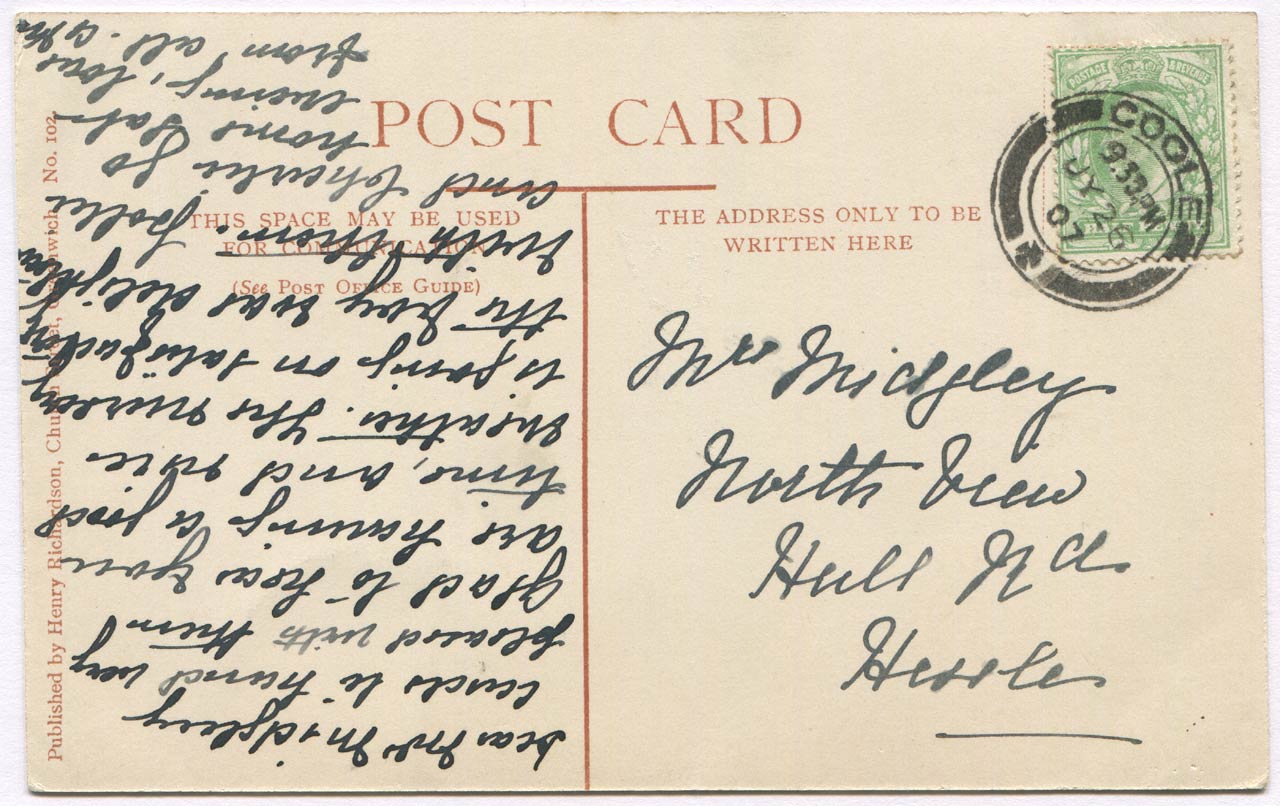 POST CARD
THIS SPACE MAY BE USED
FOR COMMUNICATION
(See POST OFFICE GUIDE)
THE ADDRESS ONLY TO BE
WRITTEN HERE
POSTAGE & REVENUE
GOOLE
9.33PM
JY 26
07
Mrs Midgley
North View
Hull Rd
Hessle
Dear Mrs Midgley
cards to hand very
pleased with them
Glad to hear you
are having a good
time, and nice
weather. The
is going on satisfactory
the boy was delighted
with them. Pollie
and Charlie go
home Sat-
evening, love
from all.
Published by Henry Richardson, Church Street, Greenwich. No. 102.